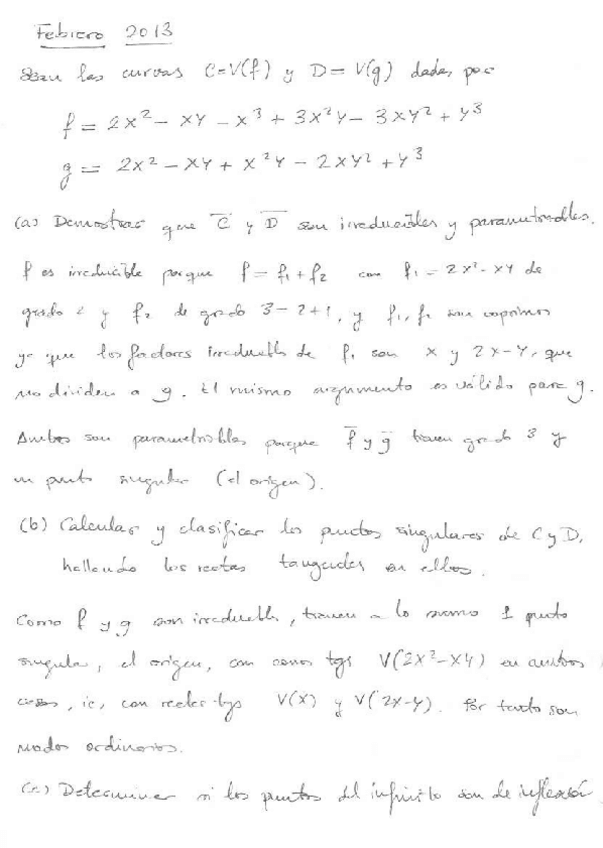 Febrero 2013
Sean las curvas C=V(f) y D=V(g) dadas por
f = 2x² - xy - x³ + 3x²y - 3xy² + y³
g = 2x² - xy + x²y - 2xy² + y³
(a) Demostrar que C̅ y D̅ son irreducibles y parametrizables.
f es irreducible porque f = f₁ + f₂ con f₁ = 2x² - xy de
grado 2 y f₂ de grado 3 = 2+1, y f₁, f₂ son coprimos
ya que los factores irreducibles de f₁ son x y 2x-y, que
no dividen a g. El mismo argumento es válido para g.
Ambas son parametrizables porque f̅ y g̅ tienen grado 3 y
un punto singular (el origen).
(b) Calcular y clasificar los puntos singulares de C y D,
hallando las rectas tangentes en ellos.
Como f y g son irreducibles, tienen a lo sumo 1 punto
singular, el origen, con conos tgs V(2x²-xy) en ambos
casos, ie, con rectas tgs V(x) y V(2x-y). Por tanto son
nodos ordinarios.
(c) Determinar si los puntos del infinito son de inflexión